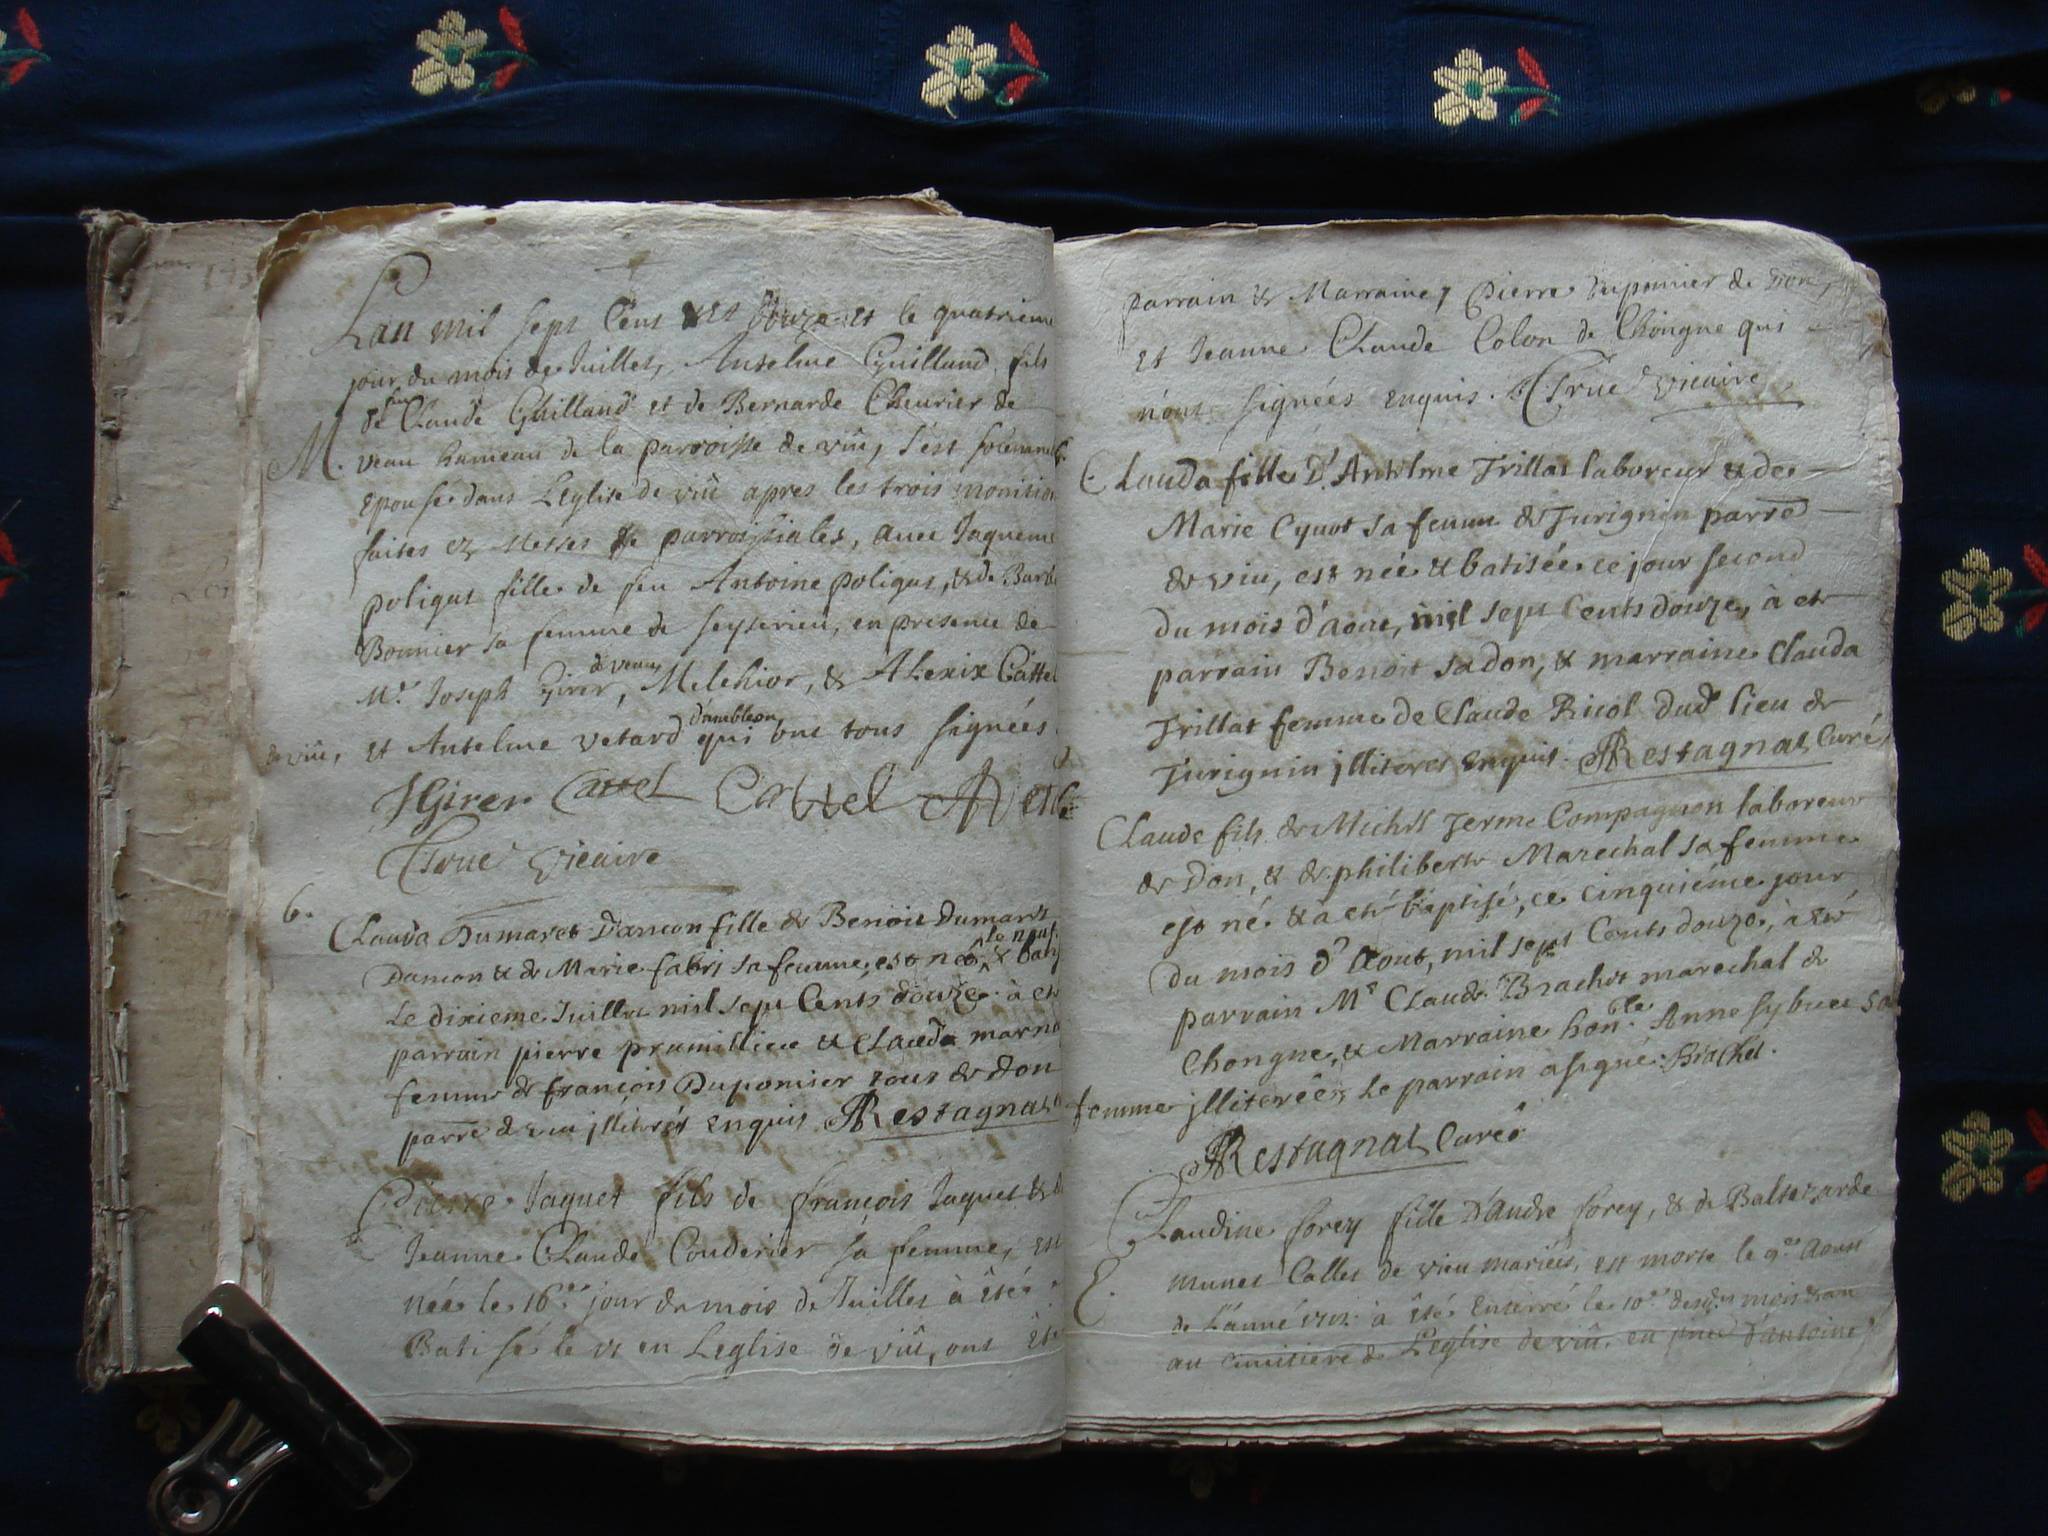 Lan mil sept Cens et douze et le quatrieme
jour du mois de Juillet, Anselme Guilland fils
de feu Claude Guilland et de Bernarde Cheurier de
M. veau hameau de la parroisse de viû, s'est solemnel
epousé dans L'eglise de viû apres les trois monition
faites ez Messes parroissiales, auec Jaqueme
poligat fille de feu Antoine poligat, & de Barbe
Bonnier sa femme de seyserieu, en presence de
Mr. Joseph Girer de veau, Melchior, & Alexix Cattel
de viû, et Antelme vetard d'ambleon qui ont tous signées
JGirer Cattel Cattel
Trué vicaire
6. Clauda Dumaret Dancon fille de Benoit Dumaret
Dancon & de Marie fabri sa femme est née, le neuf & bati
Le dixieme Juillet mil sept Cents douze. à eté
parrain pierre prumillieu & Clauda marna
femme de françois Duponier tous de don
parre de viu illiterés enquis RRestagnat
Pierre Jaquet fils de françois Jaquet & de
Jeanne Claude Couderier sa femme, est
née le 16e. jour de mois de Juillet à étée
Batisé le 17 en Leglise de viû, ont éte
parrain & Marraine, Pierre Duponier de Don,
et Jeanne Claude Colon de Chongne qui
n'ont signées enquis. Trué vicaire
Clauda fille D'. Antelme Trillat laboreur & de
Marie Cyuot sa femme de Jurignin parre
de viu, est née & batisée ce jour second
du mois d'aout, mil sept Cents douze, à eté
parrain Benoit sadon, & marraine Clauda
Trillat femme de Claude Ricol dud lieu de
Jurignin illiteres enquis. RRestagnat Curé
Claude fils de Michel Jerme Compagnon laboreur
de Don, & de philiberte Marechal sa femme
est né & a eté baptisé, ce cinquiéme jour
du mois d'Aout, mil sept Cents douze, à eté
parrain Mr Claude Brachet marechal de
Chongne, & Marraine honble. Anne sybuet sa
femme illiterée, Le parrain a signé. Brachet.
RRestagnat Curé
Claudine forey fille D'andre forey, & de Baltezarde
E. munet Callet de vieu mariéés, est morte le 9e aoust
de L'anné 1712. à été Enterré le 10e desdn mois & an
au cimitiere de L'eglise de viû, en pnce d'antoine